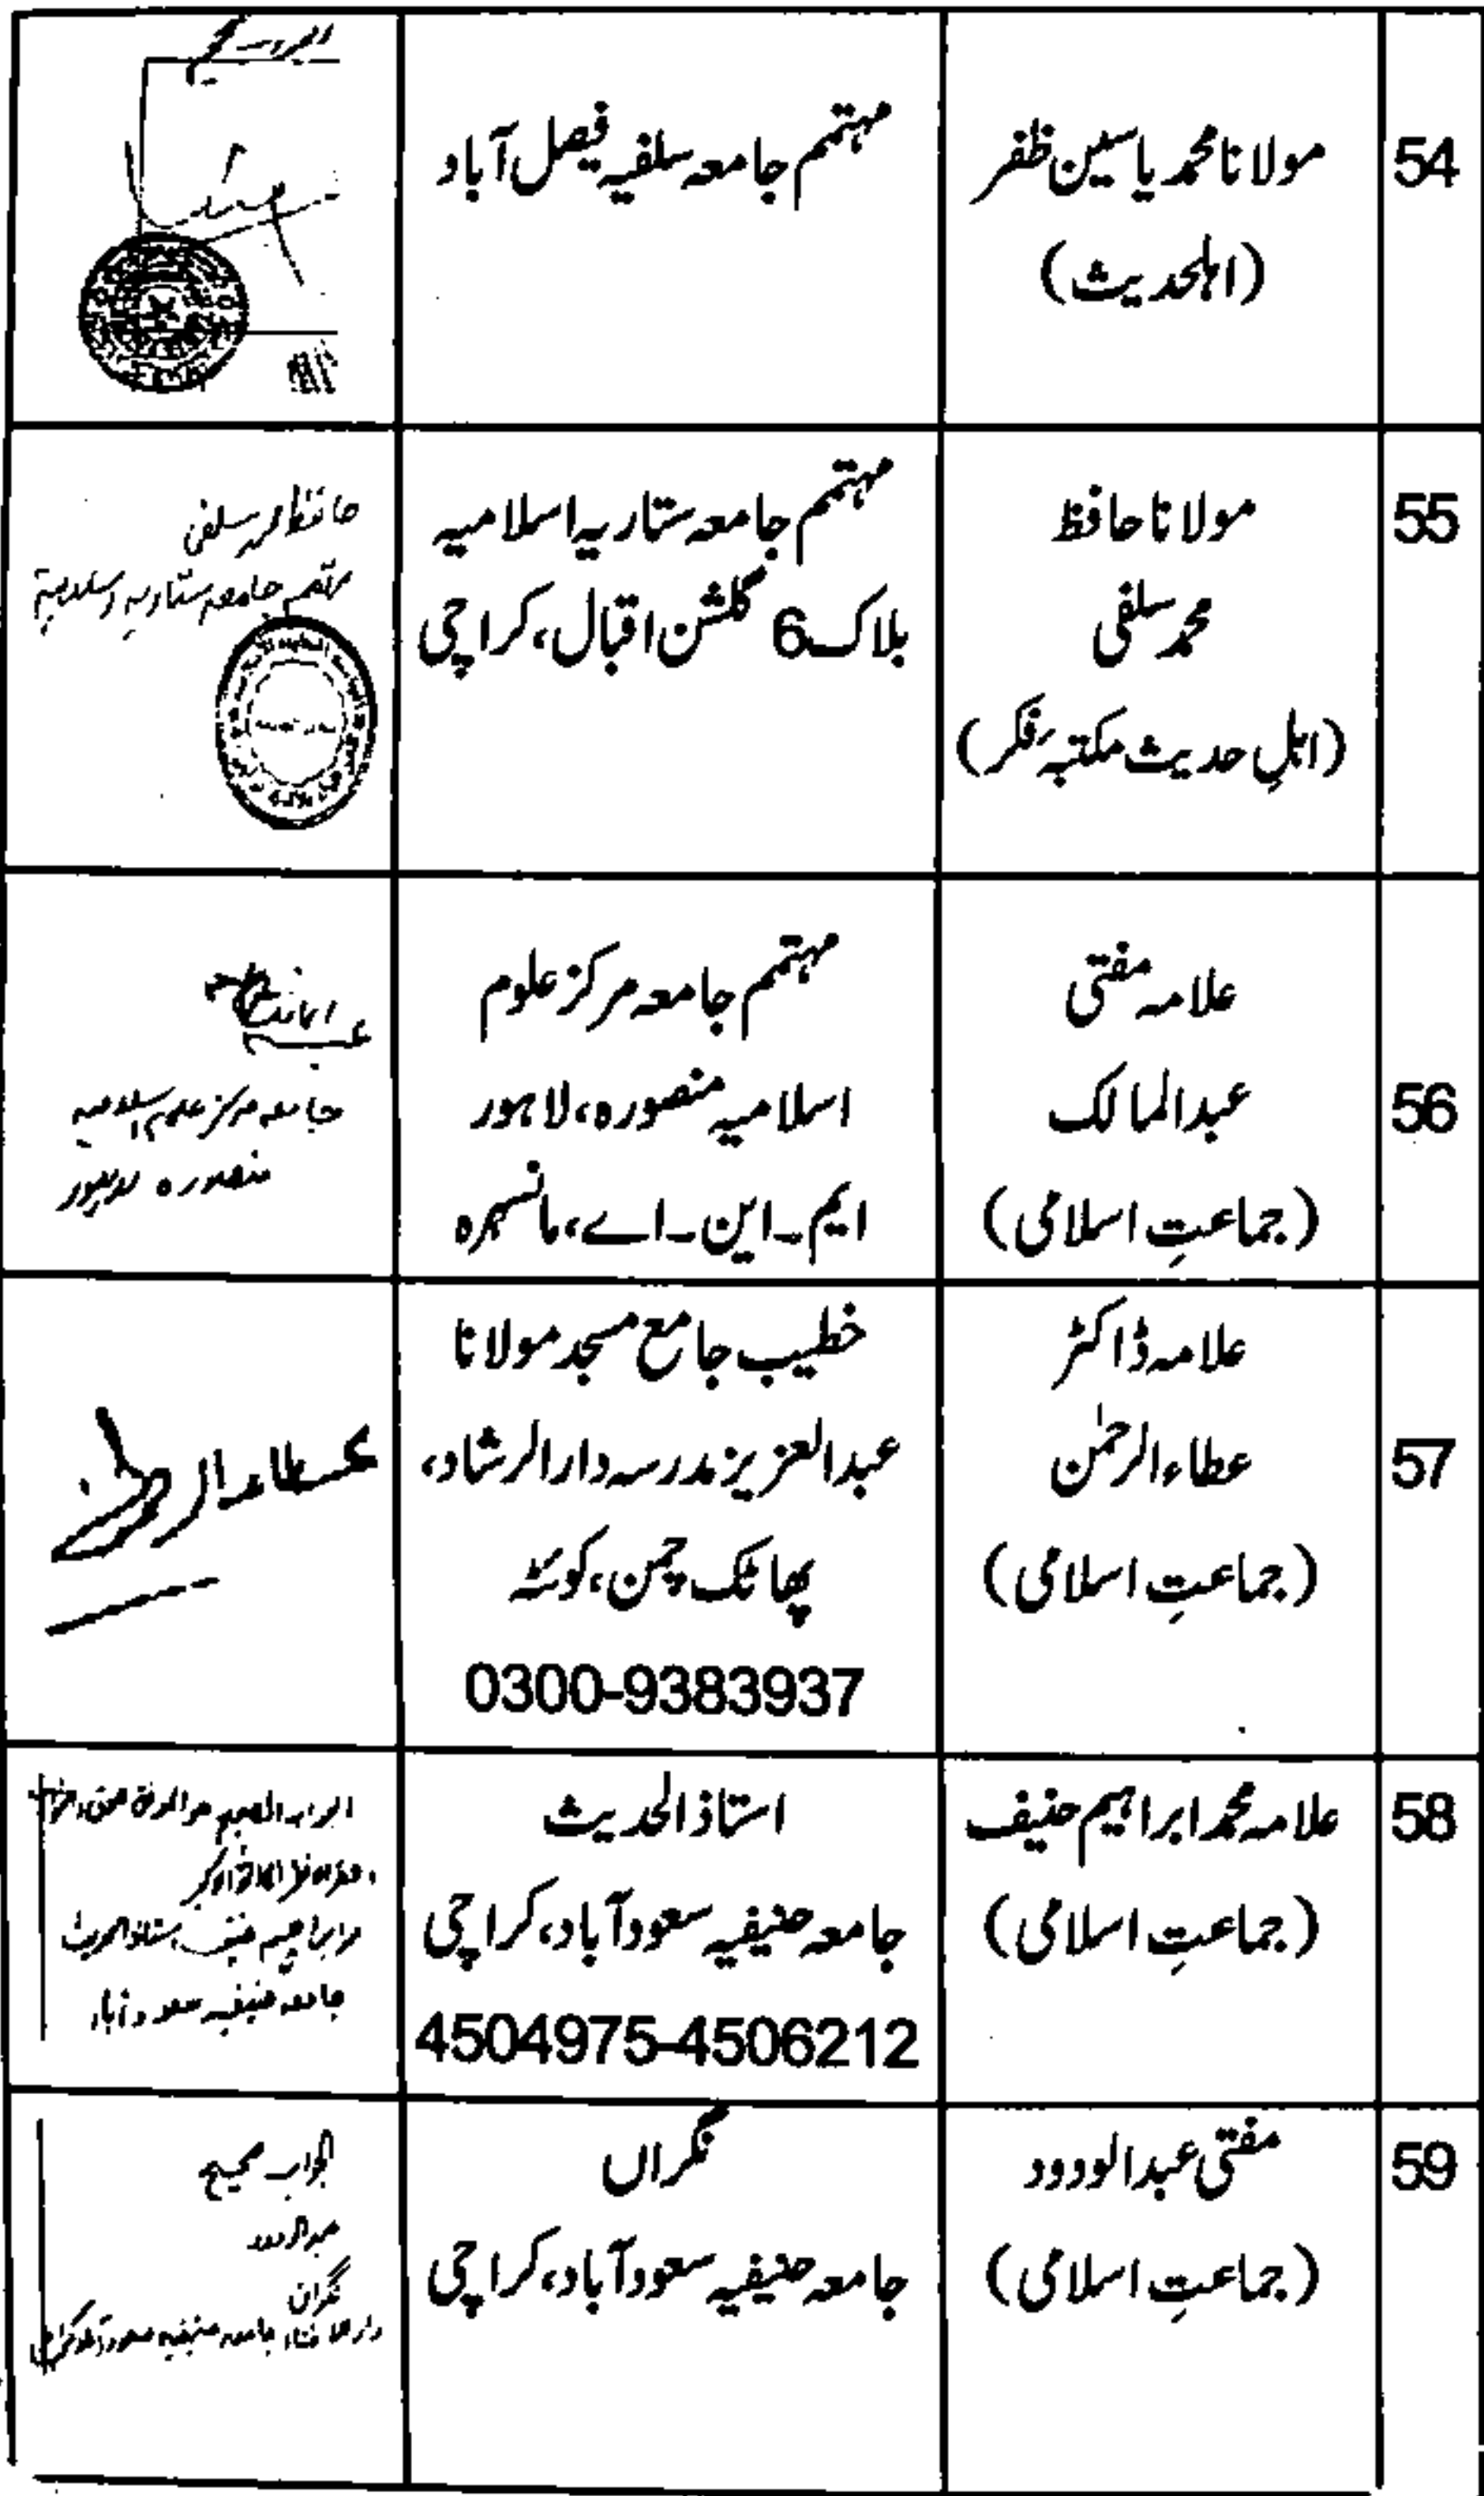 54
مولانا محمد یاسین ظفر
(اہلحدیث)
مہتمم جامعہ سلفیہ فیصل آباد
55
مولانا حافظ
محمد سلفی
(اہلِ حدیث مکتبہ فکر)
مہتمم جامعہ ستاریہ اسلامیہ
بلاک 6 گلشن اقبال، کراچی
حافظ محمد سلفی
مہتمم جامعہ ستاریہ اسلامیہ
56
علامہ مفتی
عبدالمالک
(جماعتِ اسلامی)
مہتمم جامعہ مرکز علوم
اسلامیہ منصورہ، لاہور
ایم۔این۔اے، مانسہرہ
جامعہ مرکز علوم اسلامیہ
منصورہ لاہور
57
علامہ ڈاکٹر
عطاء الرحمٰن
(جماعتِ اسلامی)
خطیب جامع مسجد مولانا
عبدالعزیز مدرسہ دارالرشاد،
پھاٹک چمن، کوئٹہ
0300-9383937
عطاء الرحمن
58
علامہ محمد ابراہیم حنیف
(جماعتِ اسلامی)
استاذ الحدیث
جامعہ حنیفیہ سعودآباد، کراچی
4504975-4506212
ابراہیم حنیف استاذ الحدیث
جامعہ حنیفیہ سعودآباد
59
مفتی عبدالودود
(جماعتِ اسلامی)
نگراں
جامعہ حنیفیہ سعودآباد، کراچی
الجواب صحیح
عبدالودود
نگران
دارالافتاء جامعہ حنیفیہ سعودآباد کراچی